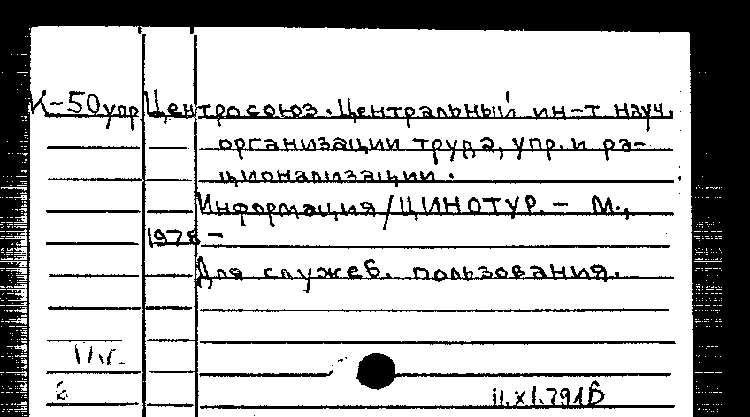 К-50упр Центросоюз. Центральный ин-т науч.
организации труда, упр. и ра-
ционализации.
Информация/ЦИНОТУР. - М.,
1978 -
Для служеб. пользования.